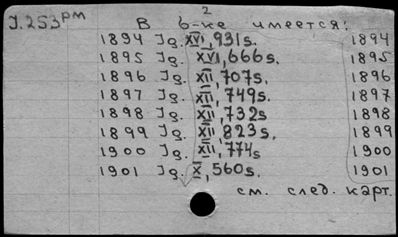 2
J.253 рм В б-ке имеется:
1894 Jg. XVI, 931s. 1894
1895 Jg. XVI, 666s. 1895
1896 Jg. XII, 707s. 1896
1897 Jg. XII, 749s. 1897
1898 Jg. XII, 732s 1898
1899 Jg. XII, 823s. 1899
1900 Jg. XII, 774s 1900
1901 Jg. X, 560s. 1901
см. след. карт.